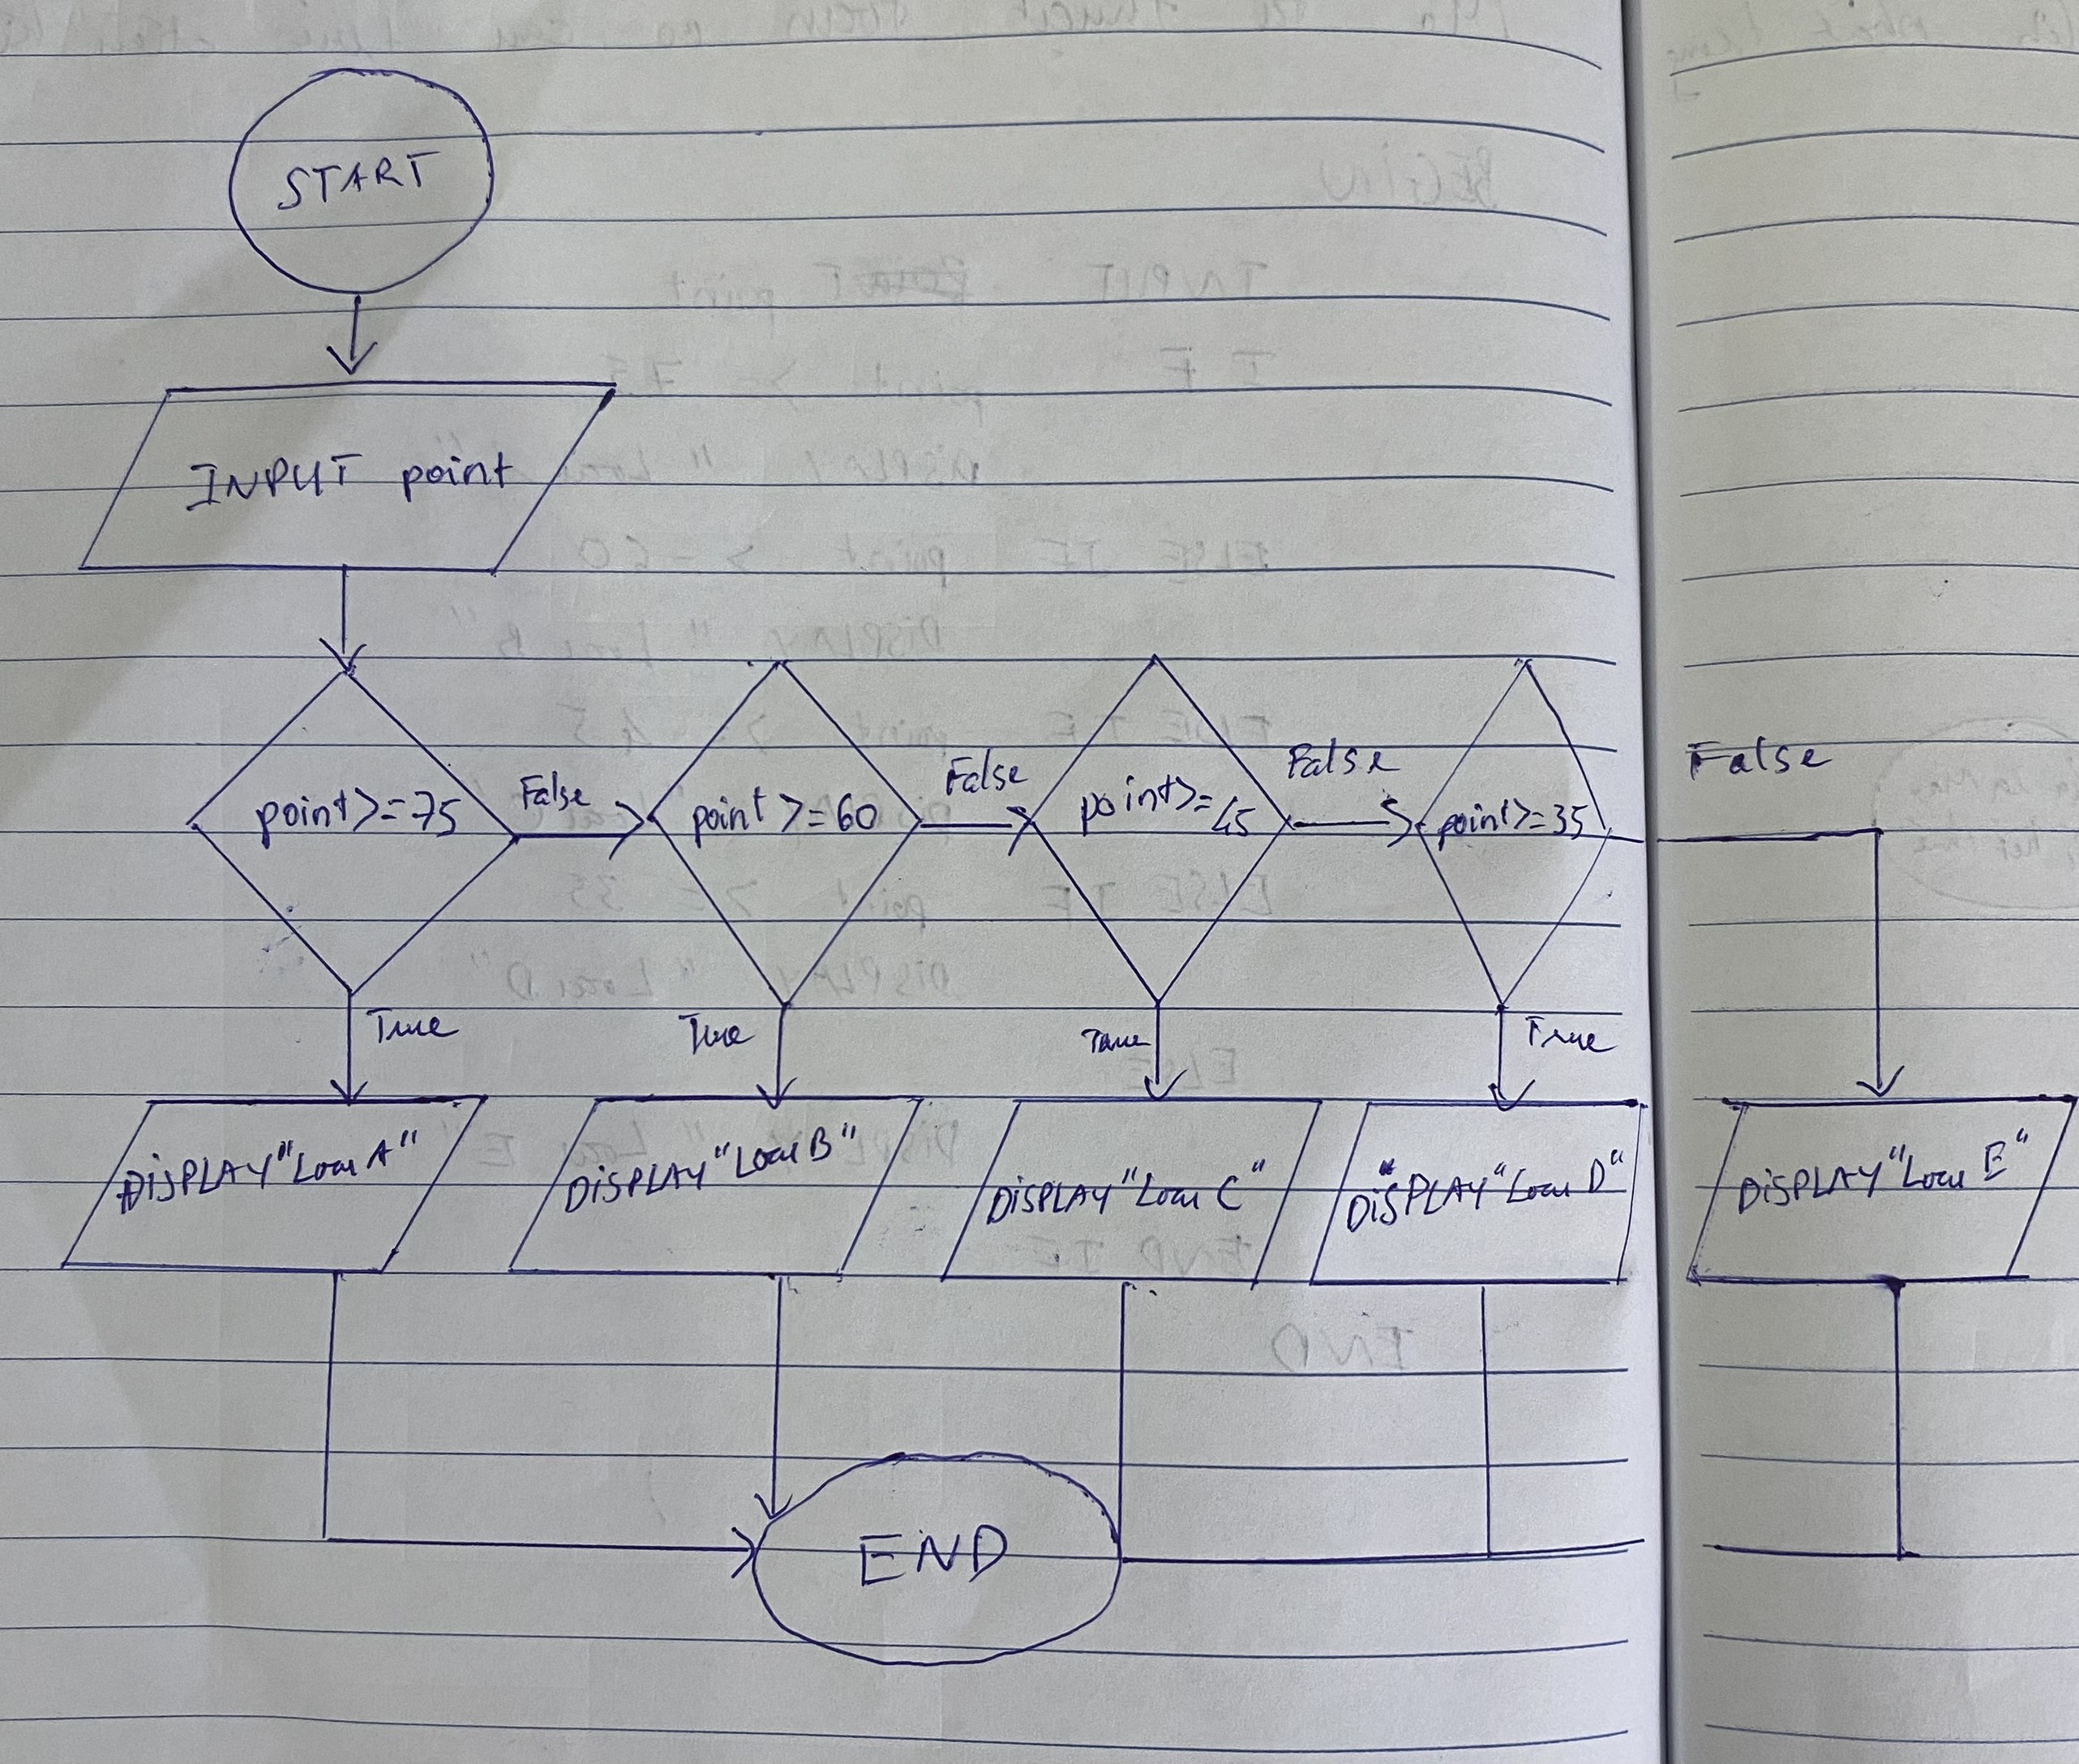 START
INPUT point
point>=75
False
point>=60
False
point>=45
False
point>=35
False
True
True
True
True
DiSPLAY "Loại A"
DiSPLAY "Loại B"
DiSPLAY "Loại C"
DiSPLAY "Loại D"
DiSPLAY "Loại E"
END